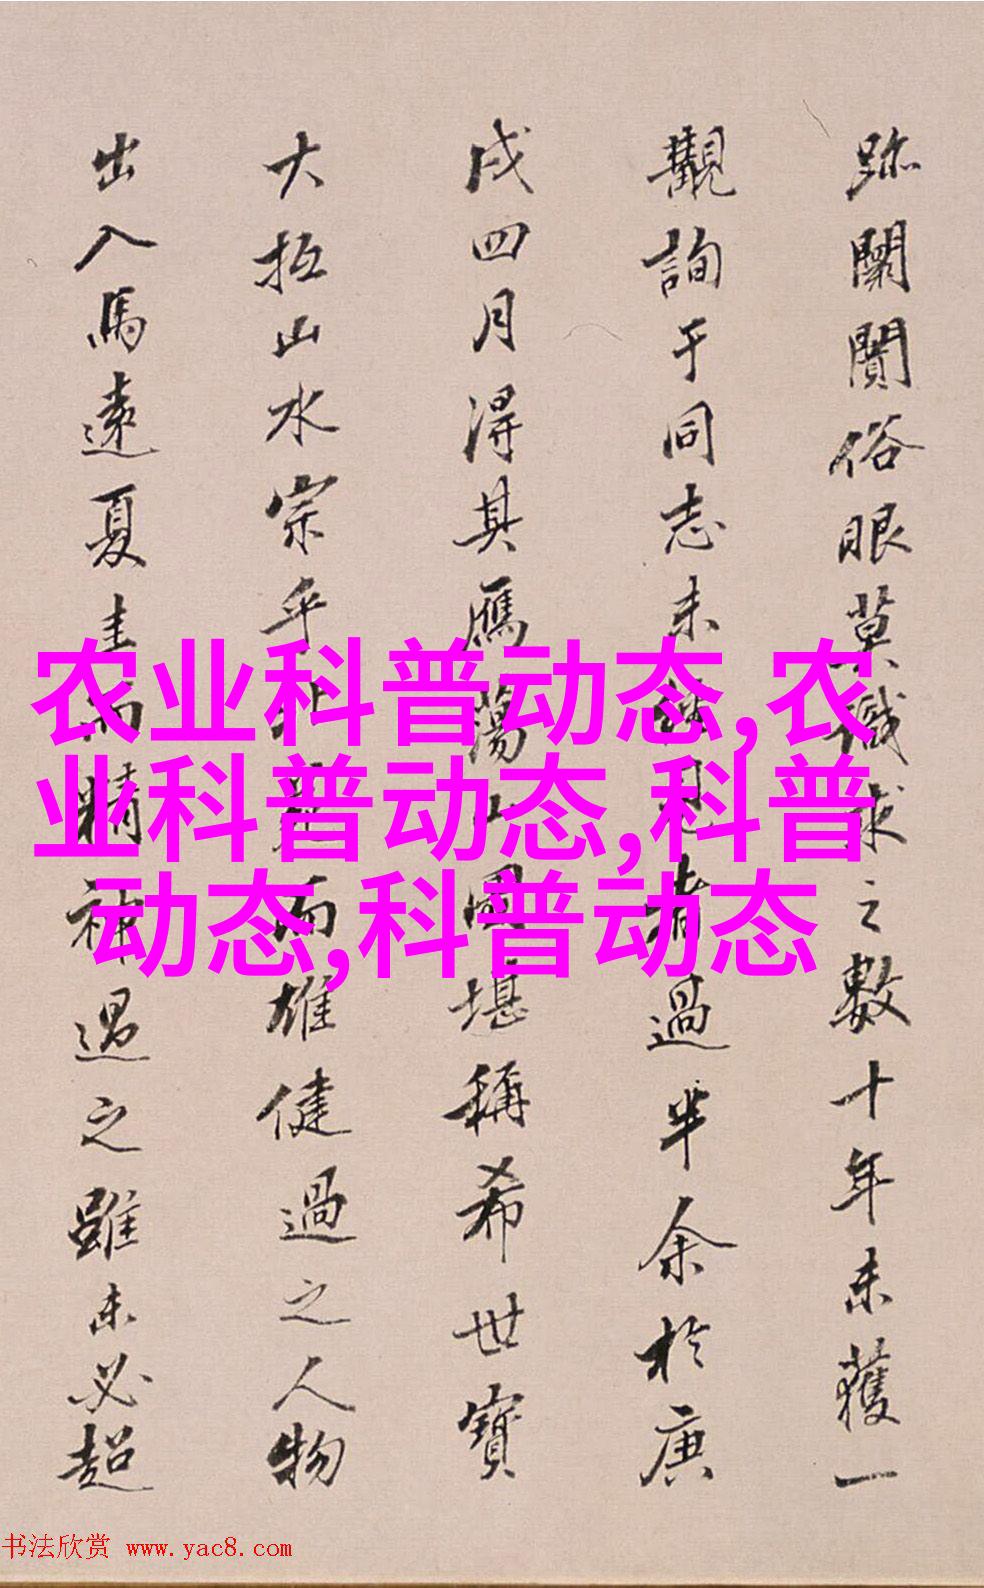 跡闤闠俗眼莫識求之數十年未獲一
觀詢于同志未見者過半余於庚
戌四月得其雁蕩山圖堪稱希世寶
大抵山水宗乎北苑而雄健過之人物
出入馬遠夏圭而精神過之雖未必超
农业科普动态,农
业科普动态,科普
动态,科普动态
书法欣赏 www.yac8.com